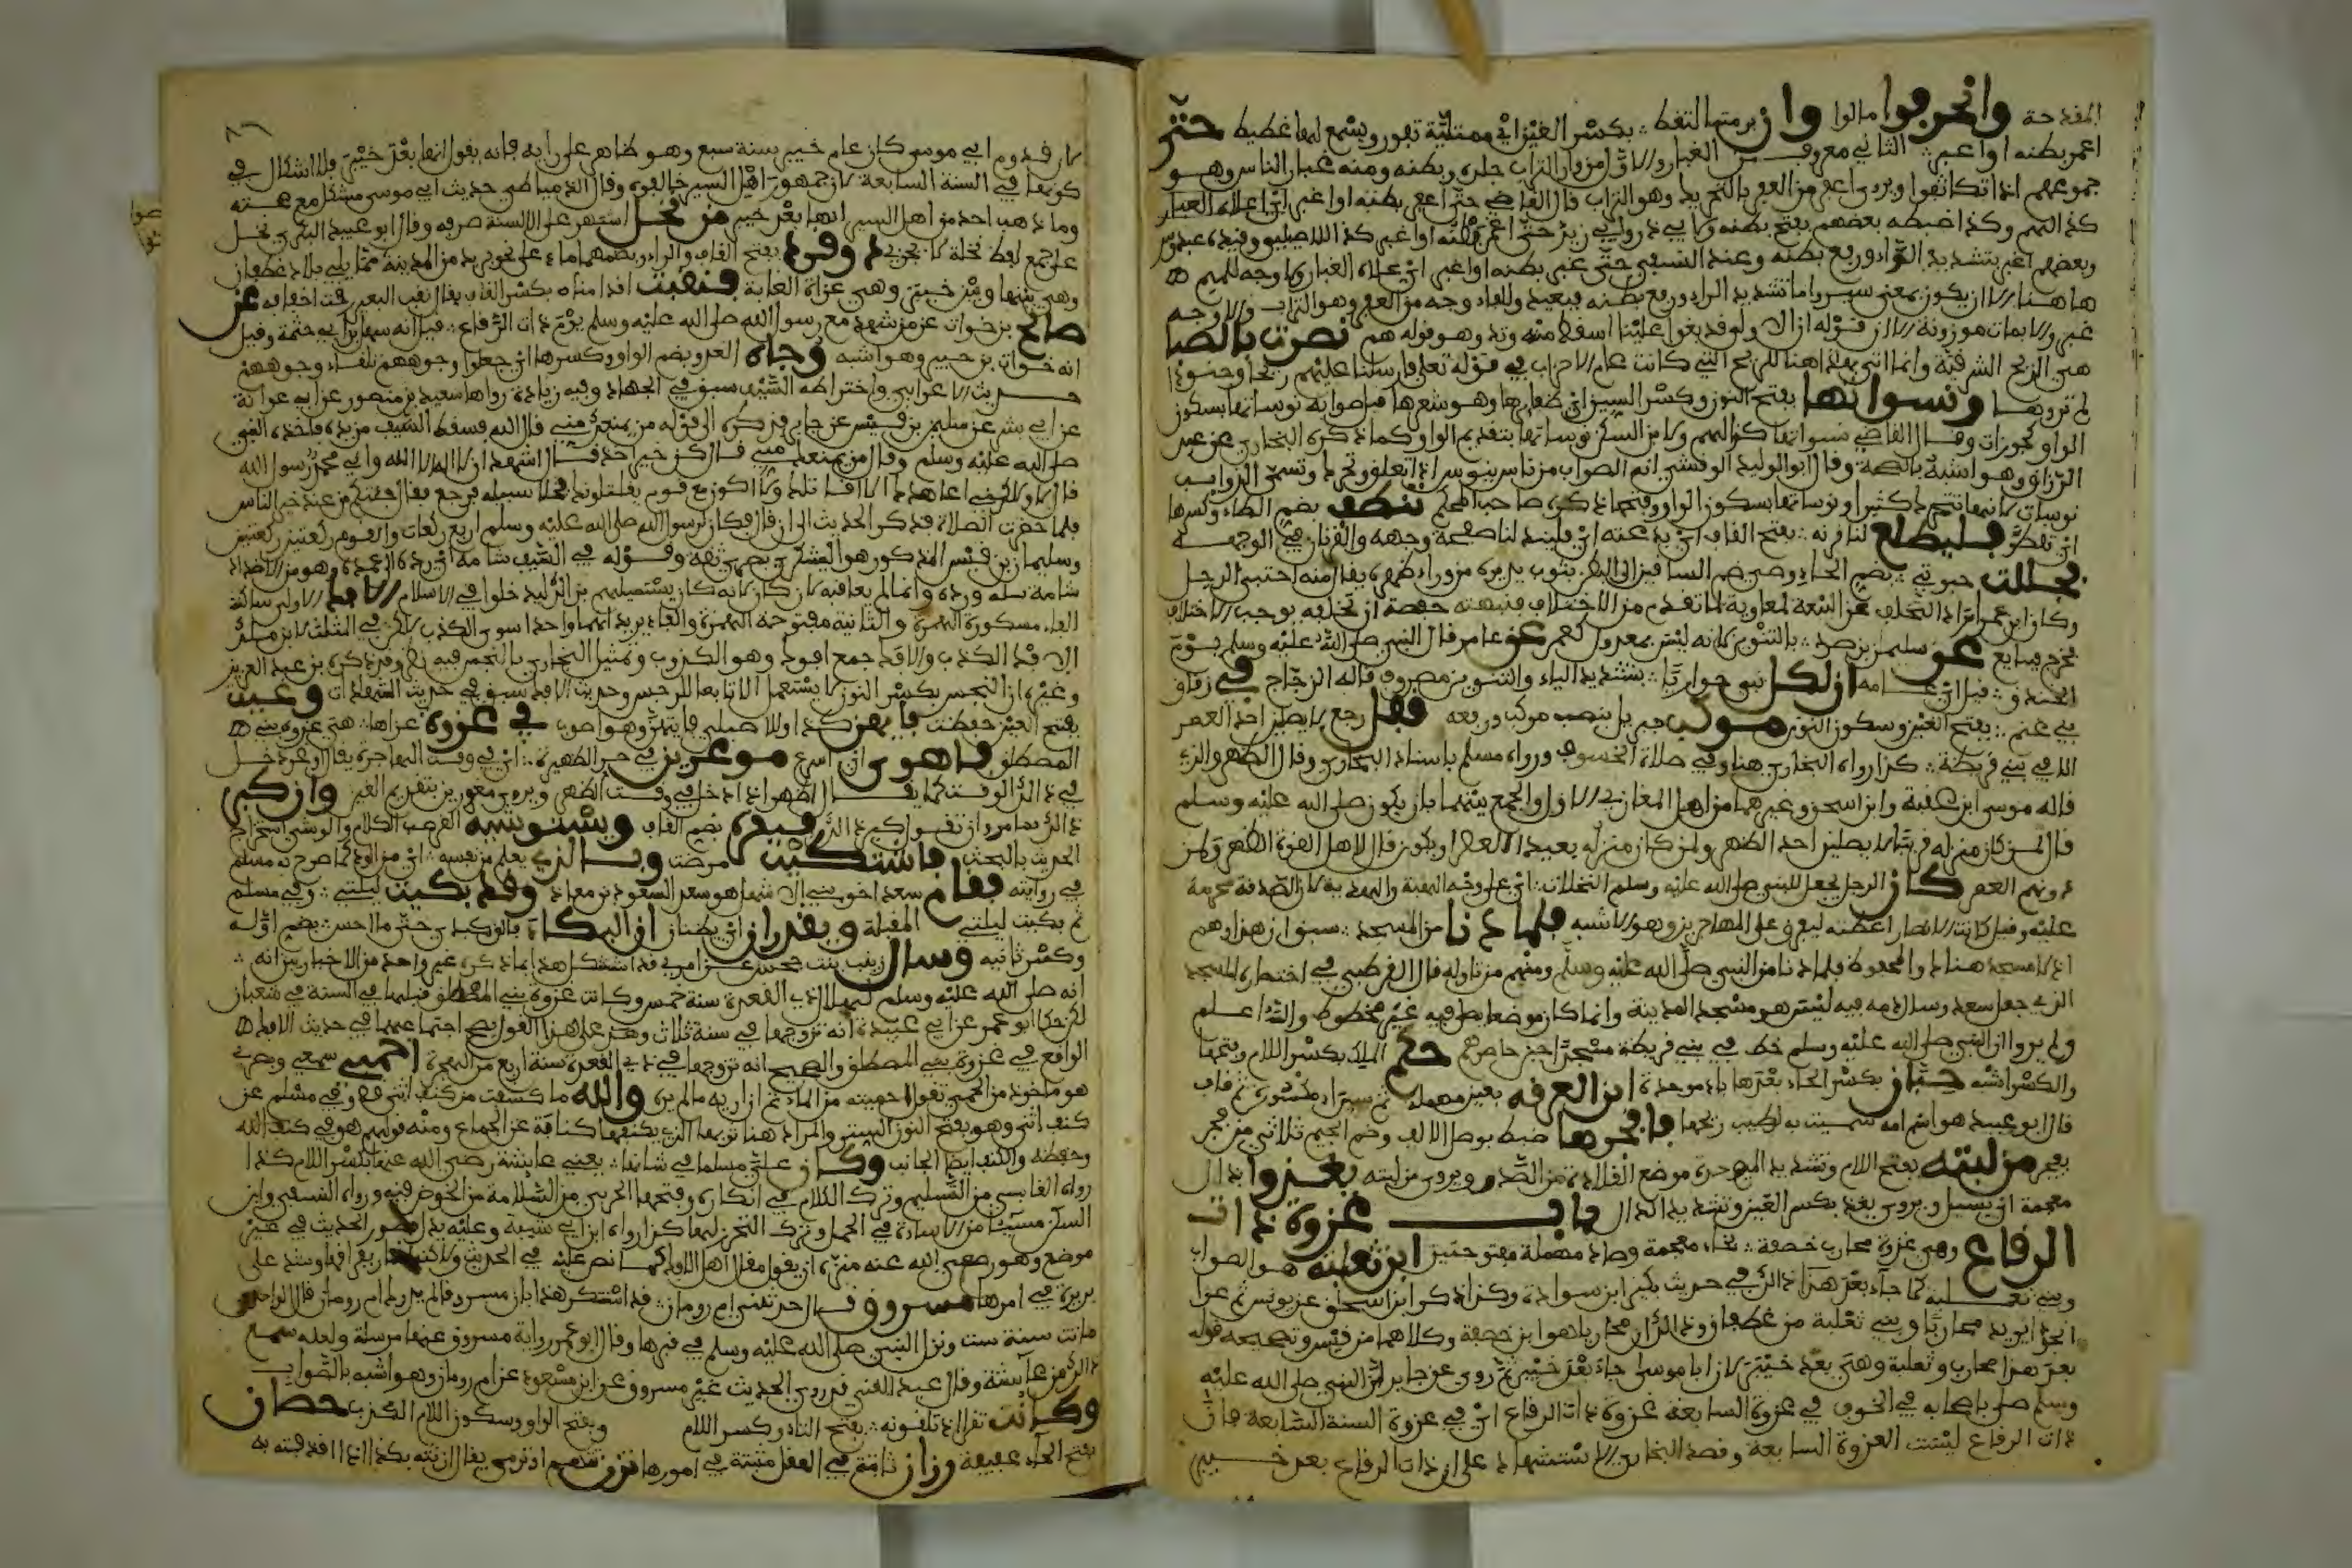 المقدحة وانحرفوا مالوا وان برمتها لتغط بكسر الغين اي ممتلئة تفور ويسمع لها غطيط حتى
اغمر بطنه او اغبر الثاني معروف من الغبار والاول من وار التراب جلدة بطنه ومنه غمار الناس وهو
جموعهم اذا تكاثفوا ويروى اعفر من العفر بالتحريك وهو التراب قال القاضي حتى اعفر بطنه او اغبر اي علاه الغبار
كذا لهم وكذا ضبطه بعضهم بفتح بطنه ولابي ذر وابي زيد حتى اغمر بطنه او اغبر كذا للاصيلي وقيده عبدوس
وبعضهم اغبر بتشديد الراء ورفع بطنه وعند النسفي حتى غبر بطنه او اغبر اي علاه الغبار ولا وجه للميم
هاهنا الا ان يكون بمعنى ستر واما تشديد الراء ورفع بطنه فبعيد وللفاء وجه من العفر وهو التراب والاوجه
اغبر والابيات موزونة الا ان قوله ان الاولى قد بغوا علينا اسقط منه وتد وهو قوله هم نصرت بالصبا
هي الريح الشرقية وانما اتى بهذا هنا للريح التي كانت عام الاحزاب في قوله تعلى فارسلنا عليهم ريحا وجنودا
لم تروها ونسواتها بفتح النون وكسر السين اي ضفائرها وهو شعرها قيل صوابه نوساتها بسكون
الواو كجوزات وقال القاضي نسواتها كذا لهم ولابن السكن نوساتها بتقديم الواو وكما ذكره البخاري عن عبد
الرزاق وهو اشبه بالصحة وقال ابو الوليد الوقشي انه الصواب من ناس ينوس اذا تعلق وتحرك وتسمى الذوايب
نوسات لانها تتحرك كثيرا ونوساتها بسكون الواو وفتحها ذكره صاحب المحكم تنطف بضم الطاء وكسرها
اي تقطر فليطلع لنا قرنه بفتح القاف اي بدعته اي فليبد لنا صفحة وجهه والقرنان في الوجه
فحللت حبوتي بضم الحاء وهي ضم الساقين الى البطن بثوب يديره من وراء ظهره يقال منه احتبى الرجل
وكان ابن عمر اراد التخلف عن البيعة لمعاوية لما تقدم من الاختلاف فنبهته حفصة ان تخلفه يوجب الاختلاف
فخرج فبايع عن سليمن بن صرد بالتنوين لانه ليس بمعدول كعمر عن عامر قال النبي صلى الله عليه وسلم يوم
الخندق قيل اي عامه ان لكل نبي حواريا بتشديد الياء والتنوين مصروف قاله الزجاج في زقاق
بني غنم بفتح الغين وسكون النون موكب جبريل بنصب موكب ورفعه قفل رجع لا يصلين احد العصر
الا في بني قريظة كذا رواه البخاري هنا وفي صلاة الخسوف ورواه مسلم باسناد البخاري وقال الظهر والذي
قاله موسى ابن عقبة وابن اسحق وغيرهما من اهل المغازي الاول والجمع بينهما بان يكون صلى الله عليه وسلم
قال لمن كان منزله قريبا لا يصلين احد الظهر ولمن كان منزله بعيدا العصر او يكون قال لاهل القوة الظهر ولمن
دونهم العصر كان الرجل يجعل للنبي صلى الله عليه وسلم النخلات اي على وجه الهبة والهدية لان الصدقة محرمة
عليه وقيل كانت الانصار اعطته ليفرق على المهاجرين وهو الاشبه فلما دنا من المسجد سبق ان هذا وهم
اذ لا مسجد هناك والمحفوظ فلما دنا من النبي صلى الله عليه وسلم ومنهم من تاوله قال القرطبي في اختصاره المسجد
الذي جعل سعد وسال دمه فيه ليس هو مسجد المدينة وانما كان موضعا يصلى فيه غير مخطوط والله اعلم
ولم يروا ان النبي صلى الله عليه وسلم خط في بني قريظة مسجدا حين حاصرهم حكم الملك بكسر اللام وفتحها
والكسر اشبه حبان بكسر الحاء بعدها باء موحدة ابن العرقة بعين مهملة ثم راء مكسورة ثم قاف
قال ابو عبيد هو اسم امه سميت به لطيب ريحها فافجرها ضبط بوصل الالف وضم الجيم ثلاثي من فجر
يفجر من لبته بفتح اللام وتشديد الموحدة موضع القلادة من الصدر ويروى من ليته يغذوا بذال
معجمة اي يسيل ويروى يغذ بكسر الغين وتشديد الذال باب غزوة ذات
الرقاع وهي غزوة محارب خصفة بخاء معجمة وصاد مهملة مفتوحتين ابن ثعلبة هو الصواب
وبني ثعلبة كما جاء بعد هذا ذلك في حديث بكر ابن سوادة وكذا ذكر ابن اسحق عن يونس ثم غزا
نجدا يريد محاربا وبني ثعلبة من غطفان وذلك ان محاربا هو ابن خصفة وكلاهما من قيس وتصحيحه قوله
بعد هذا محارب وثعلبة وهي بعد خيبر لان ابا موسى جاء بعد خيبر ثم روى عن جابر ان النبي صلى الله عليه
وسلم صلى باصحابه في الخوف في غزوة السابعة غزوة ذات الرقاع اي في غزوة السنة السابعة فان
ذات الرقاع ليست الغزوة السابعة وقصد البخاري الاستشهاد على ان ذات الرقاع بعد خيبر
لان قدوم ابي موسى كان عام خيبر سنة سبع وهو ظاهر على رايه فانه يقول انها بعد خيبر فلا اشكال في
كونها في السنة السابعة لان جمهور اهل السير خالفوه وقال الدمياطي حديث ابي موسى مشكل مع صحته
وما ذهب احد من اهل السير انها بعد خيبر من نخل اشتهر على الالسنة صرفه وقال ابو عبيد البكري نخل
على جمع لفظ نخلة لا يجرى ذي وقرد بفتح القاف والراء وبضمهما ماء على نحو بريد من المدينة مما يلي بلاد غطفان
وهي بينها وبين خيبر وهي غزاة الغابة فنقبت اقدامنا بكسر القاف يقال نقب البعير رقت اخفافه عن
صالح بن خوات عمن شهد مع رسول الله صلى الله عليه وسلم يوم ذات الرقاع قيل انه سهل بن ابي حثمة وقيل
انه خوات بن جبير وهو اشبه وجاه العدو بضم الواو وكسرها اي جعلوا وجوههم تلقاء وجوههم
حديث الاعرابي واختراطه السيف سبق في الجهاد وفيه زيادة رواها سعيد بن منصور عن ابي عوانة
عن ابي بشر عن سليمن بن قيس عن جابر فذكره الى قوله من يمنعك مني قال الله فسقط السيف من يده فاخذه النبي
صلى الله عليه وسلم وقال من يمنعك مني قال كن خير اخذ قال اشهد ان لا اله الا الله واني محمد رسول الله
قال لا ولكني اعاهدك الا اقاتلك ولا اكون مع قوم يقاتلونك فخلا سبيله فرجع فقال جئتكم من عند خير الناس
فلما حضرت الصلاة فذكر الحديث الى ان قال فكان لرسول الله صلى الله عليه وسلم اربع ركعات وللقوم ركعتين ركعتين
وسليمان بن قيس المذكور هو اليشكري بصري ثقة وقوله في السيف شامه اي رده اغمده وهو من الاضداد
شامه سله ورده وانما لم يعاقبه لانه كان يستميلهم بذلك ليدخلوا في الاسلام الافك الاولى ساكنة
الفاء مسكورة الهمزة والثانية مفتوحة الهمزة والفاء يريد انهما واحد اسوى الكذب لكن في المثلث لابن مالك
الافك الكذب والافك جمع افوك وهو الكذوب وتمثيل البخاري بالنجس فيه نظر وقد ذكره بن عبد العزيز
وغيره ان النجس بكسر النون لا يستعمل الا تابعا للرجس وحديث الافك سبق في حديث الشهادات وعيت
بفتح العين حفظت فايهن كذا وللاصيلي فايتهن وهو اصوب في غزوة غزاها هي غزوة بني
المصطلق فاهوى اي اسرع موغرين في حر الظهيرة اي في وقت الهاجرة يقال اوغر دخل
في ذلك الوقت كما يقال اظهر اذا دخل في وقت الظهر ويروى مغورين بتقديم الغين وان كبر
ذلك بما مر وان تفسر كبر ذلك فيقره بضم القاف ويستوشيه افرهب الكلام والوشي استخراج
الحديث بالبحث فاشتكيت مرضت وبالذي يعلم من نفسه اي من الود كما صرح به مسلم
في روايته فقام سعد اخو بني الاشهل هو سعد السعود بن معاذ وقد بكيت ليلتي وفي مسلم
ثم بكيت ليلتي المقبلة ويقدران اي يظنان ان البكاء فالق كبدي حتى ما احس بضم اوله
وكسر ثانيه وسال زينب بنت جحش عن امري قد استشكل هذا بما ذكره غير واحد من الاخباريين انه
انه صلى الله عليه وسلم تزوجها لهلال ذي القعدة سنة خمس وكانت غزوة بني المصطلق قبلها في السنة في شعبان
لكن حكا ابو عمر عن ابي عبيدة انه تزوجها في سنة ثلاث وهذا على هذا القول يصح اجتماعهما في حديث الافك
الواقع في غزوة بني المصطلق والصحيح انه تزوجها في ذي القعدة سنة اربع من الهجرة احمي سمعي وبصري
هو ماخوذ من الحمى تقول حميته من الماء ثم ان اريه ما لم ير والله ما كشفت من كنف انثى قط وفي مسلم عن
كنف انثى وهو بفتح النون الستر والمراد هنا ثوبها الذي يكنفها كناية عن الجماع ومنه قولهم هو في كنف الله
وحفظه والكنف ايضا الجانب وكان علي مسلما في شانها يعني عايشة رضي الله عنها بكسر اللام كذا
رواه القابسي من التسليم وترك الكلام في انكاره وفتحها الحربي من السلامة من الخوض فيه ورواه النسفي وابن
السكن مسيئا من الاساءة في الحمل وترك التحزن لها كذا رواه ابن ابي شيبة وعليه يدل فصول الحديث في غير
موضع وهو رضي الله عنه منزه ان يقول مقال اهل الافك كما نص عليه في الحديث ولاكنه اشار بفراقها وشدد على
بريرة في امرها مسروق قال حدثتني ام رومان قد استنكر هذا بان مسروقا لم يدرك ام رومان قال الواحدي
ماتت سنة ست ونزل النبي صلى الله عليه وسلم في قبرها وقال ابو عمر رواية مسروق عنها مرسلة ولعله سمع
ذلك من عايشة وقال عبد الغني قد روي الحديث عن مسروق عن ابن مسعود عن ام رومان وهو اشبه بالصواب
وكانت تقرا اذ تلقونه بفتح التاء وكسر اللام وبفتح الواو وسكون اللام الكذب حصان
بفتح الحاء عفيفة رزان ثابتة في العقل مثبتة في امورها تزن تتهم او ترمى يقال ازننته بكذا اذا اقذفته به